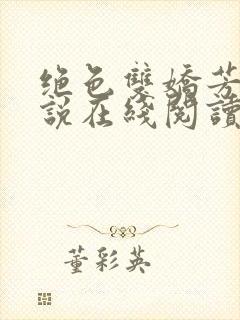 绝色雙嬌芳
說在綫閱讀
董彩英